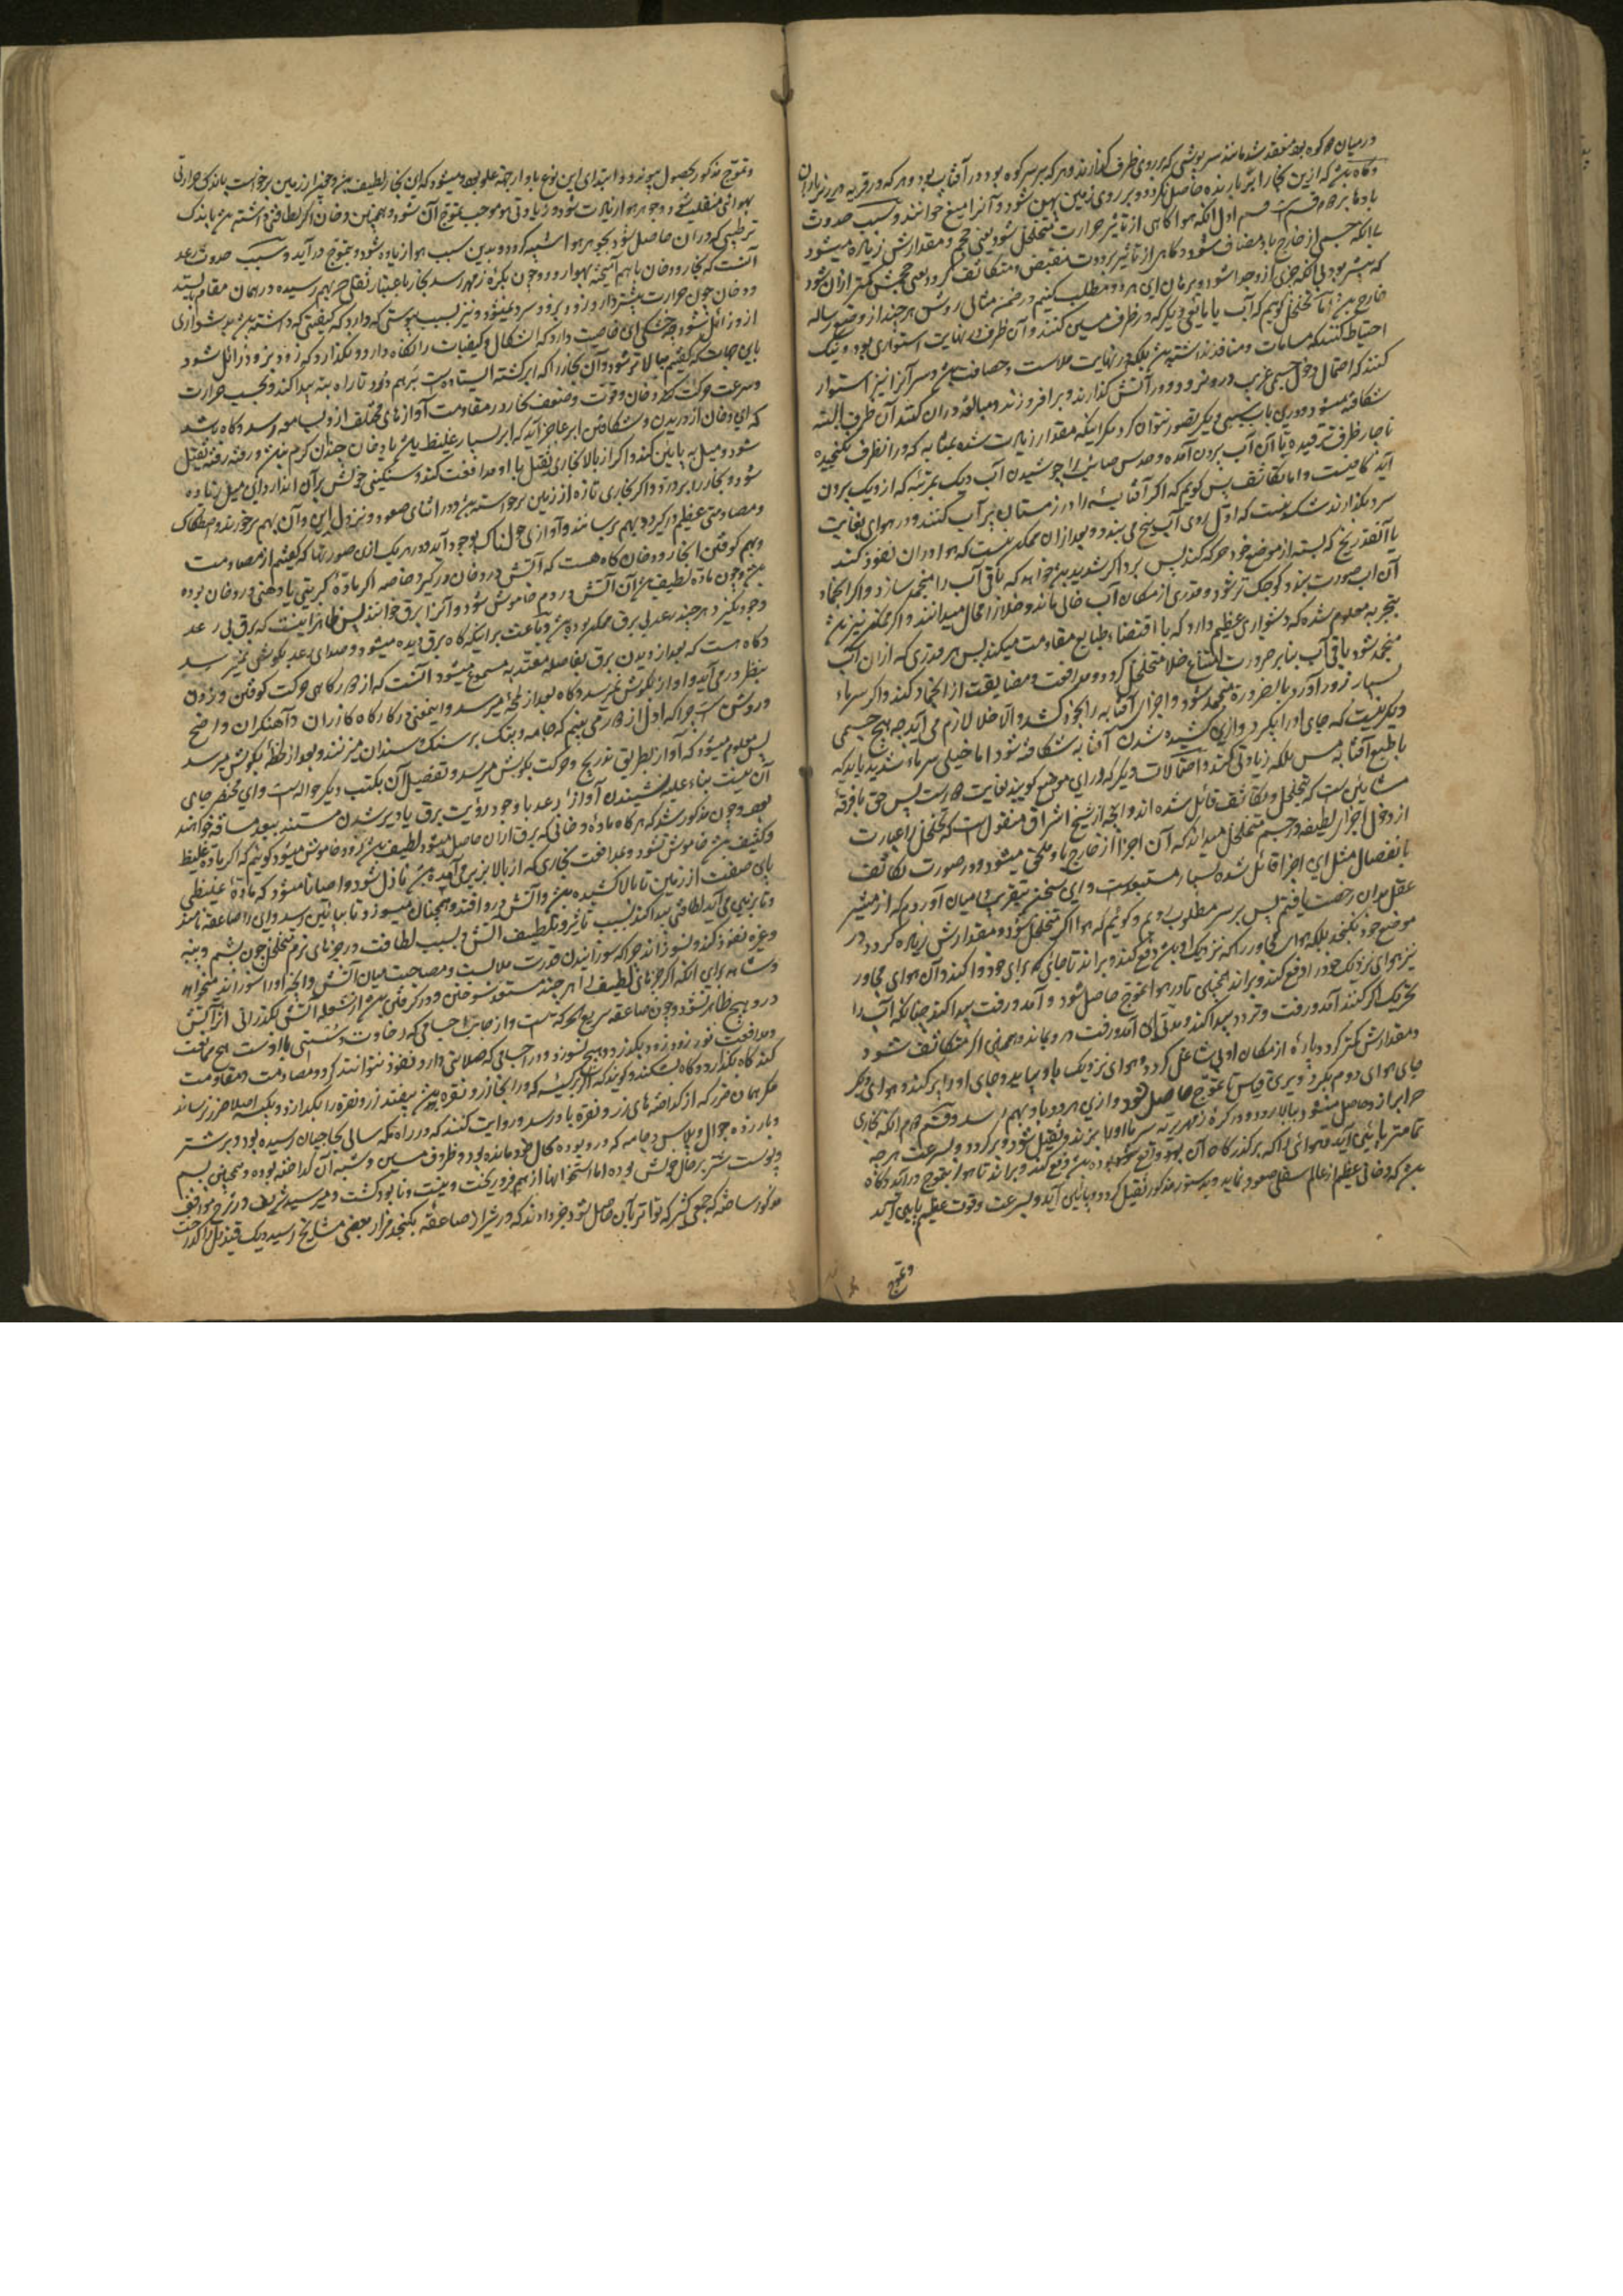 در میان دو کوه بهم منعقد شد مانند سرپوشی که بر روی ظرف گذارند و هر که بر سر کوه بود در آفتاب بود و هر که در قریه بود
و گاه باشد که ازین بخار ابر بارنده حاصل نگردد و بر روی زمین پهن شود و آنرا میغ خوانند و سبب حدوث
باد ما بر دو قسم است قسم اول آنکه هوا گاهی از تأثیر حرارت متخلخل شود یعنی حجم و مقدارش زیاده میشود
بی آنکه جسمی از خارج باو مضاف شود و گاهی از تأثیر برودت منقبض و متکاثف گردد یعنی حجمش کمتر از آن شود
که پیشتر بود بی آنکه جزئی ازو جدا شود و برهان این هر دو مطلب کنیم در ضمن مثالی روشن هر چند از وضع رساله
خارج باشد اما تخلخل گویم که آب یا مایعی دیگر که در ظرف مسین کنند و آن ظرف در نهایت استواری بود و نیک
احتیاط کنند که مسامات و منافذ نداشته باشد بلکه در نهایت ملاست و حصافت باشد و سر آنرا نیز استوار
کنند که احتمال دخول جسمی غریب درو نرود و در آتش گذارند و برافروزند و مبالغه در آن کنند آن ظرف البته
شکافته میشود و درین باب سببی دیگر تصور نتوان کرد مگر اینکه مقدار زیادت شده بمثابه که در آنظرف نگنجیده
ناچار ظرف ترقیده تا آن آب برون آمده و حدس صائب را جوشیدن آب دیگ بمرتبه که از دیگ برون
آید کافیست و اما تکاثف پس گویم که اگر آفتابه را در زمستان پر آب کنند و در هوای بغایت
سرد بگذارند شک نیست که اول روی آب یخ می بندد و بعد ازان ممکن نیست که هوا در آن نفوذ کند
یا آنقدر یخ که بسته از موضع خود حرکت کند پس برد اگر شدید باشد خواهد که باقی آب را منجمد سازد و اگر انجماد
آن آب صورت بندد کوچک تر شود و قدری از مکان آب خالی ماند و خلا از محال میدانند و اگر ممکن نیز باشد
بتجربه معلوم شده که دشواری عظیم دارد که با اقتضاء طبایع مقاومت میکند پس هر قدری که ازان آب
منجمد شود باقی آب بنا بر ضرورت امتناع خلا متخلخل گردد و مدافعت و مضایقت از انجماد کند و اگر سرما
بسیار زور آورد بالضروره منجمد شود و اجزای آفتابه را بخود کشد و الا خلا لازم می آید چه هیچ جسمی
دیگر نیست که جای او را بگیرد و ازین کشیده شدن آفتابه شکافته شود اما خیلی سرما شدید باید که
با طبع آفتابه مس بلکه زیادتی کند و احتمالات دیگر که در این موضع گویند بغایت دور است پس حق با فرقه
مشائین است که بتخلخل و تکاثف قائل شده اند و آنچه از شیخ اشراق منقول است که تخلخل را عبارت
از دخول اجزای لطیفه در جسم متخلخل میداند که آن اجزا از خارج باو ملحق میشود و در صورت تکاثف
بانفصال مثل این اجزا قائل شده بسیار مستبعد است و این سخن بتقریب در میان آوردیم که از منتشر
عقل بدان رخصت یافتیم پس بر سر مطلوب رویم و گوئیم که هوا اگر متخلخل شود و مقدارش زیاده گردد در
موضع خود نگنجد بلکه هوای مجاور را که نزدیک او باشد دفع کند و براند تا جائی که برای خود وا کند و آن هوای مجاور
نیز هوای نزدیک خود را دفع کند و براند همچنین تا در هوا تموج حاصل شود و آمد و رفت پیدا کند چنانکه آب را
تحریک اگر کنند آمد و رفت و تردد پیدا کند و مدتی این آمد و رفت درو بماند و همچنین اگر متکاثف شود
و مقدارش کمتر گردد پاره از مکان اولی شاغل گردد و هوای نزدیک باو بیاید و جای او را پر کند و هوای دیگر
جای هوای دوم بگیرد و برین قیاس تا تموج حاصل شود و ازین هر دو باد بهم رسد و قسم دوم آنکه بخاری
حرا براز و حاصل میشود ببالا رود و در کره زمهریر به سرما او را بزند و ثقیل شود و برگردد و بسرعت هر چه
تمامتر بپایین آید و هوائی را که بر گذرگاه آن بود واقع شده بود دفع کند و براند تا هوا بتموج درآید و گاه
باشد که دخانی عظیم از عالم سفلی صعود نماید و بدستور مذکور ثقیل گردد و بپائین آید و بسرعت و قوت عظیم پایین آید
و تموج
و تموج مذکور بحصول پیوندد و ابتدای این نوع باد از جهة علو بهم میشود که این بخار لطیف باشد و چون از زمین برخاست باندک حرارتی
بهوائی منقلب شود و جوهر هوا زیادت شود و زیادتی هوا موجب تموج آن شود و همچنین دخان اگر لطافتی داشته باشد باندک
ترطیبی که دران حاصل شود بجوهر هوا شبیه گردد و بدین سبب هوا زیاده شود و بتموج درآید و سبب حدوث رعد
آنست که بخار و دخان باهم آمیخته بهوا رود و چون بکره زمهریر رسد بخار باعتبار ثقلی که بهم رسیده در همان مقام بایستد
و دخان چون حرارت بیشتر دارد زود بزود سرد نمیشود و نیز بسبب یبوستی که دارد که کیفیتی که داشته باشد بدشواری
ازو زائل شود چه خشکی این خاصیت دارد که اشکال و کیفیات را نگاه دارد و نگذارد که زود بزود زائل شود
باین جهات که گفتیم ببالاتر شود و آن بخار را که ابر گشته ایستاده است برهم درد تا راه بند پیدا کند و بحسب حرارت
و سرعت حرکت دخان و قوت و ضعف بخار در مقاومت آوازهای مختلف ازو بسامعه رسد و گاه باشد
که این دخان از دریدن و شکافتن ابر عاجز آید که ابر بسیار غلیظ باشد یا دخان چندان گرم نباشد و رفته رفته ثقیل
شود و میل به پایین کند و اگر از بالا بخاری ثقیل با او مدافعت کند و سنگینی خویش بر آن اندازد این میل زیاده
شود و بخار را بدرد و اگر بخاری تازه از زمین برخاسته باشد و در اثنای صعود و نزول این و آن بهم برخورند و اصطکاک
و مصادمتی عظیم در گیرد و بهم برسانند و آوازی هولناک بوجود آید و در هر یک ازین صورتها که گفتیم از مصادمت
و بهم کوفتن ابخار و دخان گاه هست که آتش در دخان در گیرد خاصه اگر ماده کبریتی یا دهنی در دخان بوده
باشد و چون ماده لطیف باشد آن آتش در دم خاموش شود و آنرا برق خوانند پس ظاهر اینست که برق بی رعد
وجود نگیرد هر چند رعد بی برق ممکن بود و باعث بر اینکه گاه برق دیده میشود و صدای رعد بگوش نمیرسد
و گاه هست که بعد از دیدن برق بفاصله معتد به مسموع میشود آنست که از دور گاهی حرکت کوفتن و زدن
بنظر در می آید و آواز بگوش نمیرسد و گاه بعد از لمحه میرسد و اینمعنی در کارگاه گازران و آهنگران واضح
و روشن است چرا که اول از دور می بینیم که جامه و پتک بر سنگ و سندان میزنند و بعد از لحظه بگوش میرسد
پس معلوم میشود که آواز بطریق تدریج و حرکت بگوش میرسد و تفصیل آن بکتب دیگر حواله است و این مختصر جای
آن نیست بناء علیه نشنیدن آواز رعد با وجود رؤیت برق یا دیر شدن مستند ببعد مسافه خواهد
بود و چون مذکور شد که هر گاه ماده دخانی که برق ازان حاصل میشود لطیف باشد زود خاموش میشود گوئیم که اگر ماده غلیظ
و کثیف باشد خاموش نشود و بمدافعت بخاری که از بالا بزیر می آمده باشد نازل شود و احیانا میشود که ماده غلیظی
باین صفت از زمین تا بالا کشیده باشد و آتش درو افتد و همچنان میسوزد تا بپائین رسد و این را صاعقه نامند
و تا بزمین می آید لطافتی پیدا کند بسبب تاثیر و تلطیف آتش و بسبب لطافت در چیزهای نرم متخلخل چون پشم و پنبه
و غیره نفوذ کند و نسوزاند چرا که سوزانیدن قدرت ملابست و مصاحبت میان آتش و آنچه او را سوزاند میخواهد
و شاهد برای آنکه اگر چیزهای لطیف را هر چند مستعد سوختن و در گرفتن باشد از شعله آتش بگذرانی اثر آتش
درو هیچ ظاهر نشود و چون صاعقه سریع الحرکت است و از جانب اجسامی که رخاوت و سستی با اوست هیچ ممانعت
و مدافعت نبود زود زود بگذرد و هیچ نسوزد و در اجسامی که صلابتی دارد و نفوذ نتوانند کرد و مصادمت و مقاومت
کند گاه بگدازد و گاه بشکند و گویند که اگر بر کیسه که در آنجا زر و نقره باشد بیفتد زر و نقره را بگدازد و بکیسه اصلا ضرر نرساند
مگر همان ضرر که از گداخته های زر و نقره باو رسد و روایت کنند که در راه مکه سالی بحاجیان رسیده بود و بر شتر
و بار زده جوال و پلاس و جامه که درو بوده بحال خود مانده بود و ظروف مسین و شبه آن گداخته بوده و همچنین جسم
و پوست شتر بر حال خویش بوده اما استخوانها از هم فرو ریخت و نیست و نابود گشت و میر سید شریف در شرح مواقف
مذکور ساخته که جمعی کثیر که تواتر بآن حاصل شود خبر دادند که در شیراز صاعقه بگنبد مزار بعضی مشایخ رسید و یک قندیل را گداخت